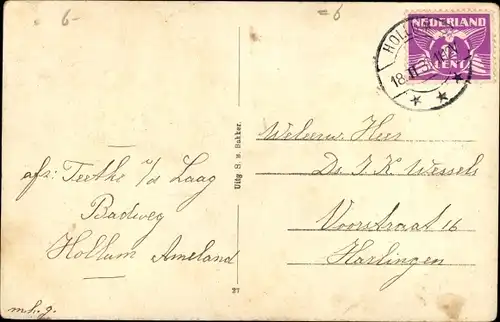 6-
=6
NEDERLAND
CENT
Weleerw. Heer
Ds. J. K. Wessels
Voorstraat 16
Harlingen
afz: Teethe v/d Laag
Badweg
Hollum Ameland
m.h.g.
Uitg S. v. Bakker.
27